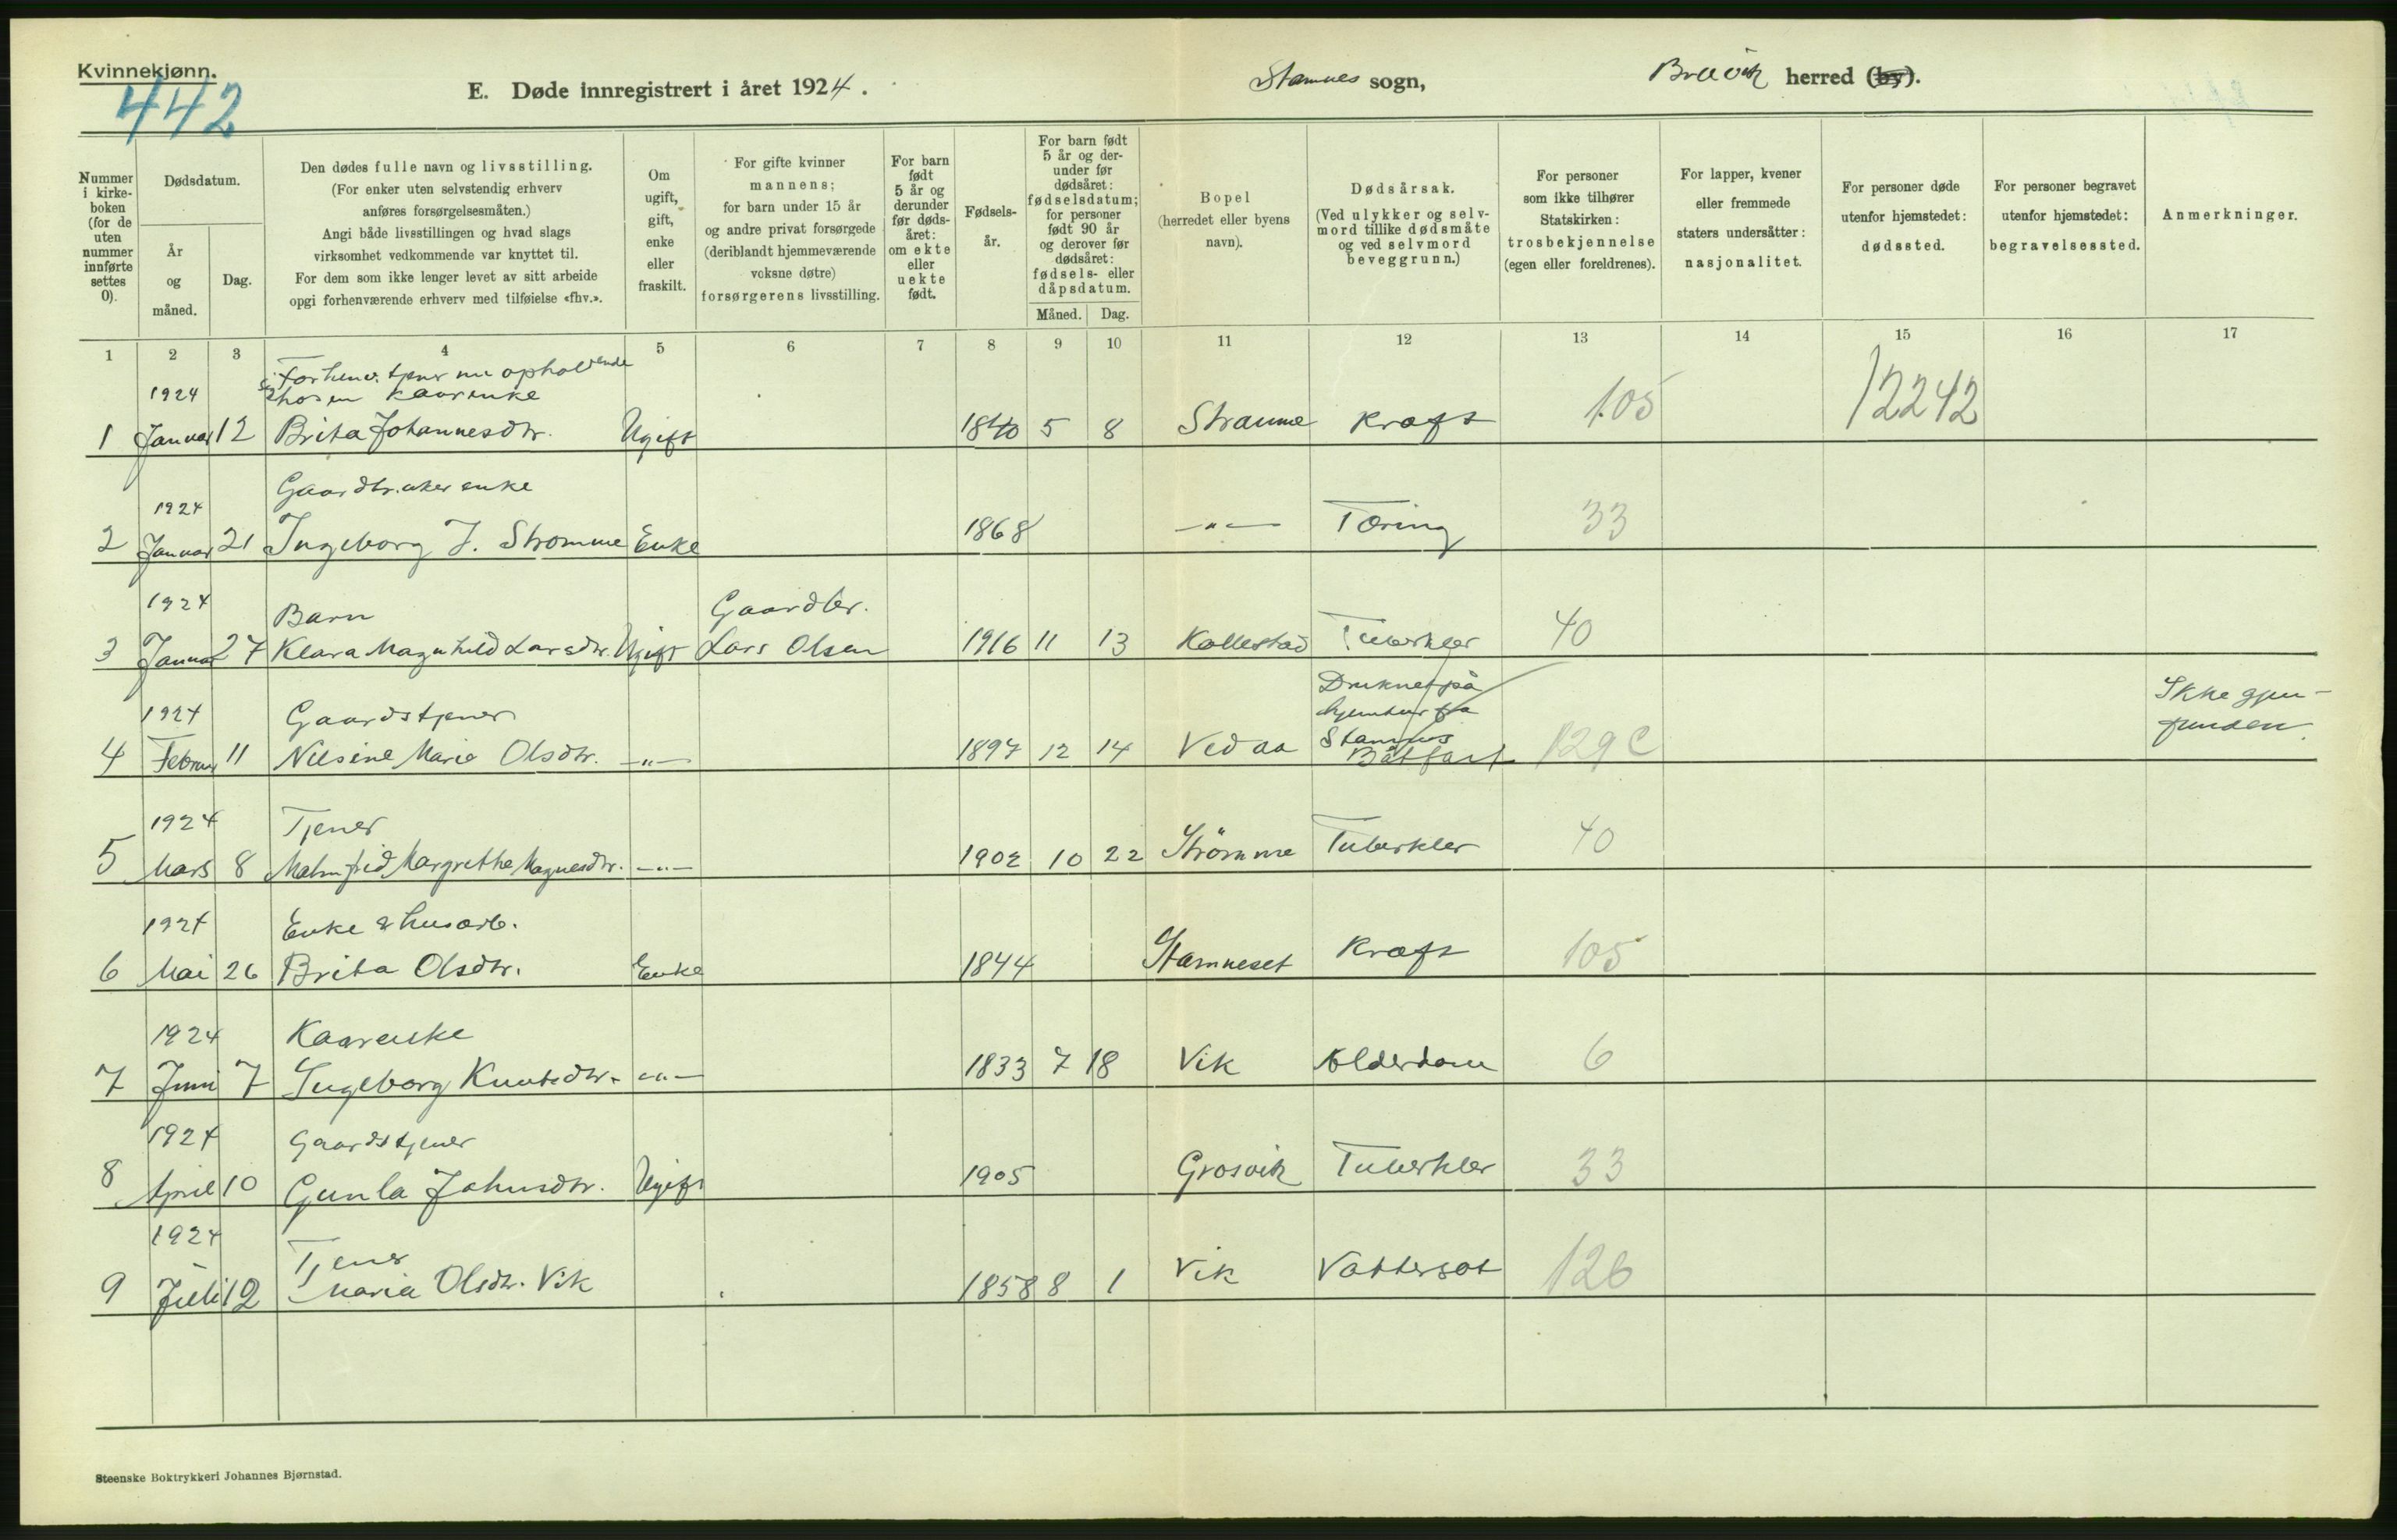 Kvinnekjønn.
442
E. Døde innregistrert i året 1924.
Stamnes sogn,
Bruvik herred (by).
Nummer
i kirke-
boken
(for de
uten
nummer
innførte
settes
0).
Dødsdatum.
År
og
måned.
Dag.
Den dødes fulle navn og livsstilling.
(For enker uten selvstendig erhverv
anføres forsørgelsesmåten.)
Angi både livsstillingen og hvad slags
virksomhet vedkommende var knyttet til.
For dem som ikke lenger levet av sitt arbeide
opgi forhenværende erhverv med tilføielse «fhv.».
Om
ugift,
gift,
enke
eller
fraskilt.
For gifte kvinner
mannens;
for barn under 15 år
og andre privat forsørgede
(deriblandt hjemmeværende
voksne døtre)
forsørgerens livsstilling.
For barn
født
5 år og
derunder
før døds-
året:
om ekte
eller
uekte
født.
Fødsels-
år.
For barn født
5 år og der-
under før
dødsåret:
fødselsdatum;
for personer
født 90 år
og derover før
dødsåret:
fødsels- eller
dåpsdatum.
Måned. Dag.
Bopel
(herredet eller byens
navn).
Dødsårsak.
(Ved ulykker og selv-
mord tillike dødsmåte
og ved selvmord
beveggrunn.)
For personer
som ikke tilhører
Statskirken:
trosbekjennelse
(egen eller foreldrenes).
For lapper, kvener
eller fremmede
staters undersåtter:
nasjonalitet.
For personer døde
utenfor hjemstedet:
dødssted.
For personer begravet
utenfor hjemstedet:
begravelsessted.
Anmerkninger.
1 2 3 4 5 6 7 8 9 10 11 12 13 14 15 16 17
Forhenv. tjener nu opholdende
1924 hos en Kaarenke
1 Januar 12 Brita Johannesdtr. Ugift 1840 5 8 Straume Kræft 105 12242
Gaardbrukerenke
1924
2 Januar 21 Ingeborg J. Strømme Enke 1868 —"— Tæring 33
1924 Barn Gaardbr.
3 Januar 27 Klara Magnhild Larsdtr. Ugift Lars Olsen 1916 11 13 Kallestad Tuberkler 40
Druknet på
1924 Gaardstjener hjemtur fra Ikke gjen-
Stamnes funden.
4 Februar 11 Nilsine Marie Olsdtr. —"— 1897 12 14 Vedaa Båtfart 129c
1924 Tjener
5 Mars 8 Malmfrid Margrethe Magnesdtr. —"— 1902 10 22 Strömme Tuberkler 40
1924 Enke & husarb.
6 Mai 26 Brita Olsdtr. Enke 1844 Stamneset Kræft 105
1924 Kaarenke
7 Juni 7 Ingeborg Knutsdtr. —"— 1833 7 18 Vik Alderdom 6
1924 Gaardstjener
8 April 10 Gunla Johnsdtr. Ugift 1905 Grosvik Tuberkler 33
1924 Tjener
9 Juli 12 Maria Olsdtr. Vik 1858 8 1 Vik Vattersot 126
Steenske Boktrykkeri Johannes Bjørnstad.